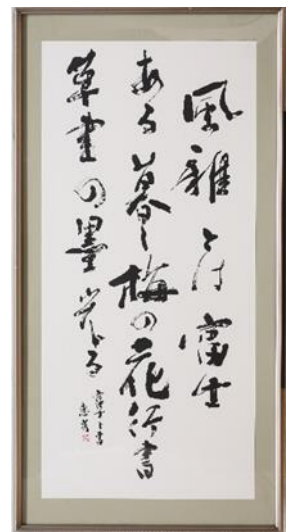 風雅とは富士
ある暮し梅の花行書
草書の墨